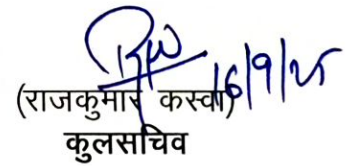 16/9/25
(राजकुमार कस्वा)
कुलसचिव